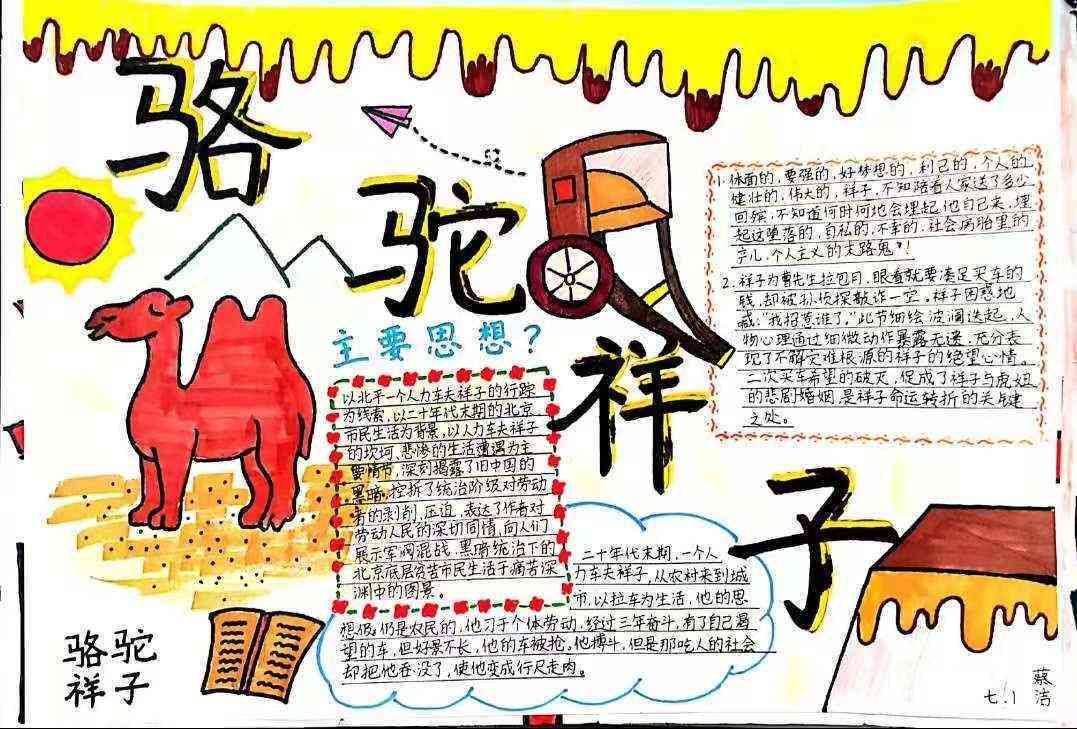 骆驼祥子
主要思想？
以北平一个人力车夫祥子的行踪
为线索，以二十年代末期的北京
市民生活为背景，以人力车夫祥子
的坎坷、悲惨的生活遭遇为主
要情节，深刻揭露了旧中国的
黑暗，控拆了统治阶级对劳动
者的剥削、压迫，表达了作者对
劳动人民的深切同情，向人们
展示军阀混战、黑暗统治下的
北京底层贫苦市民生活于痛苦深
渊中的图景。
1.体面的，要强的，好梦想的，利己的，个人的，
健壮的，伟大的，祥子，不知陪着人家送了多少
回殡，不知道何时何地会埋起他自己来，埋
起这堕落的，自私的，不幸的，社会病胎里的
产儿，个人主义的末路鬼"！
2.祥子为曹先生拉包月，眼看就要凑足买车的
钱，却被孙侦探敲诈一空。祥子困惑地
喊："我招惹谁了。"此节细绘波澜迭起，人
物心理通过细微动作暴露无遗，充分表
现了不解灾难根源的祥子的绝望心情。
二次买车希望的破灭，促成了祥子与虎妞
的悲剧婚姻，是祥子命运转折的关键
之处。
二十年代末期，一个人
力车夫祥子，从农村来到城
市，以拉车为生活，他的思
想仍仍是农民的，他习于个体劳动，经过三年奋斗，有了自己渴
望的车，但好景不长，他的车被抢。他搏斗，但是那吃人的社会
却把他吞没了，使他变成行尸走肉。
骆驼
祥子
七.1
蔡洁